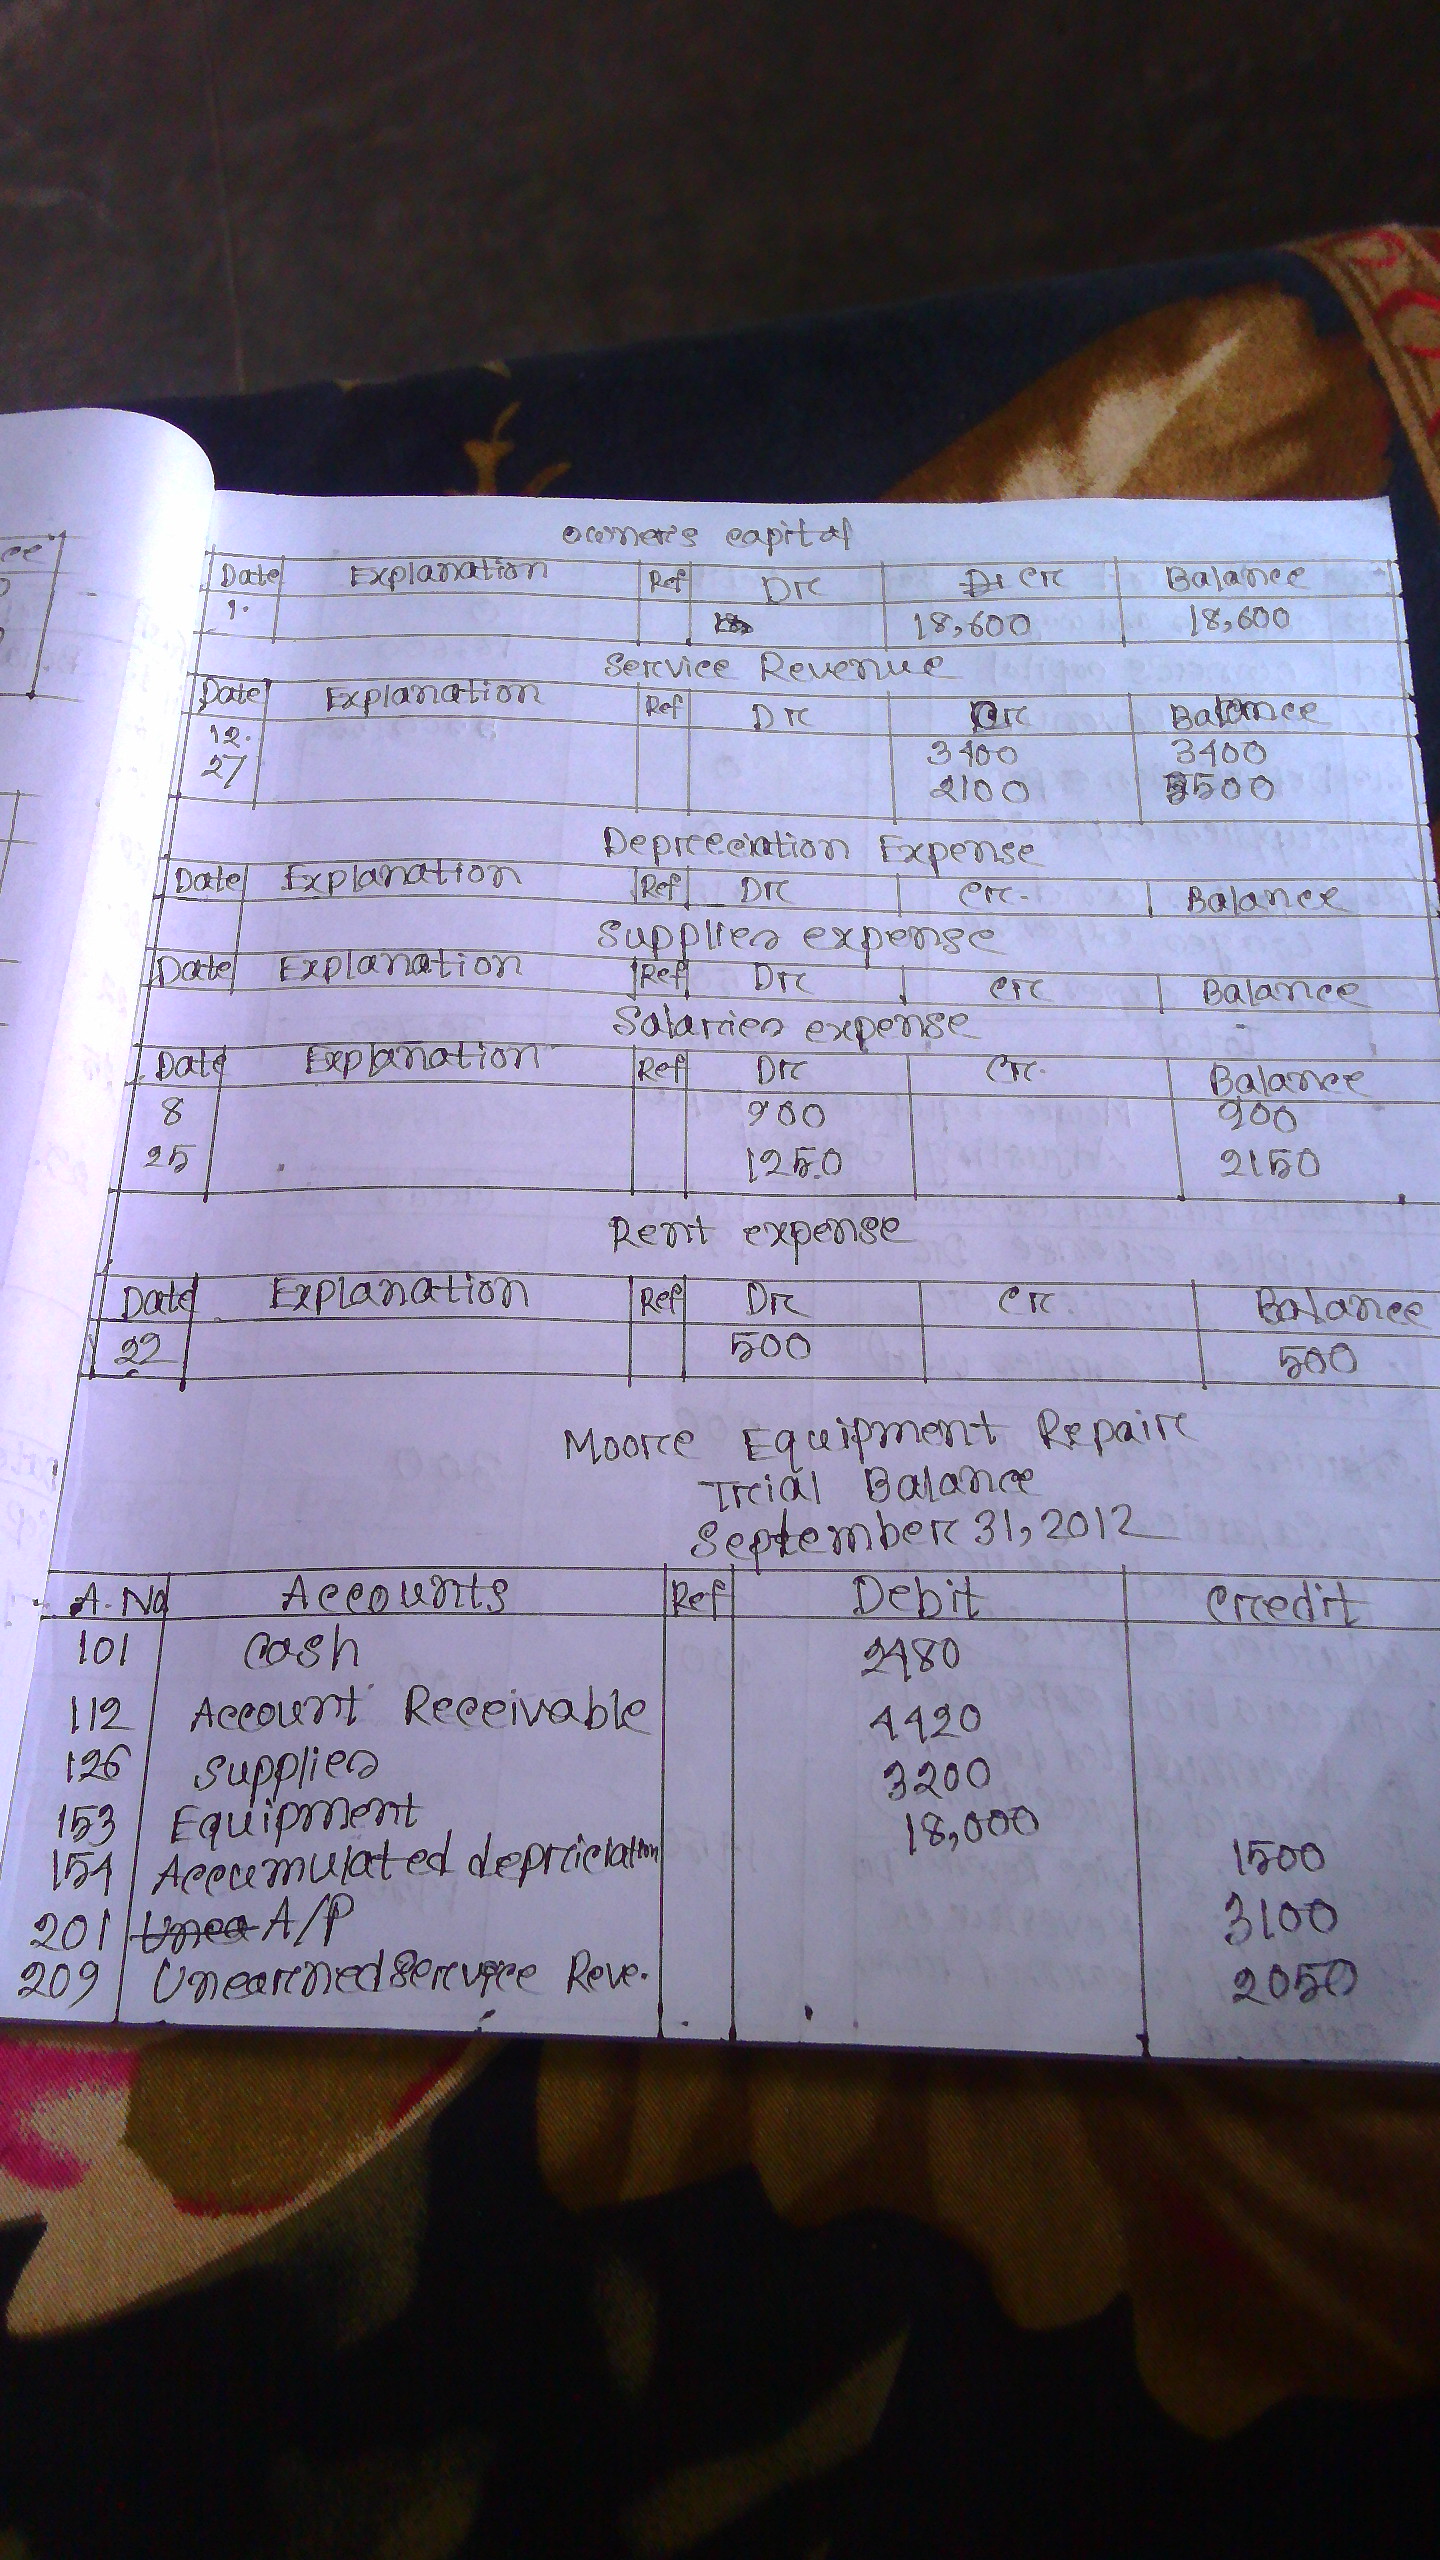 owner's capital
Date Explanation Ref Dr Cr Balance
1. 18,600 18,600
Service Revenue
Date Explanation Ref Dr Cr Balance
12. 3400 3400
27 2100 5500
Depreciation Expense
Date Explanation Ref Dr Cr. Balance
Supplies expense
Date Explanation Ref Dr Cr Balance
Salaries expense
Date Explanation Ref Dr Cr. Balance
8 900 900
25 1250 2150
Rent expense
Date Explanation Ref Dr Cr. Balance
22 500 500
Moore Equipment Repair
Trial Balance
September 31, 2012
A. No Accounts Ref Debit Credit
101 Cash 2480
112 Account Receivable 4420
126 Supplies 3200
153 Equipment 18,000
154 Accumulated depriciation 1500
201 A/P 3100
209 Unearned Service Reve. 2050